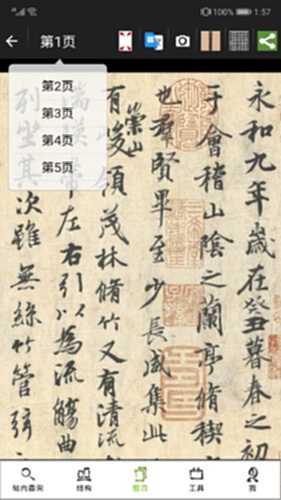 100% 1:57
第1页
第2页
第3页
第4页
第5页
永和九年歲在癸丑暮春之初
于會稽山陰之蘭亭脩稧
也羣賢畢至少長咸集此
有崇山峻領茂林脩竹又有清流
湍暎帶左右引以為流觴曲
列坐其次雖無絲竹管弦
帖内查询
结构
整页
工具
我